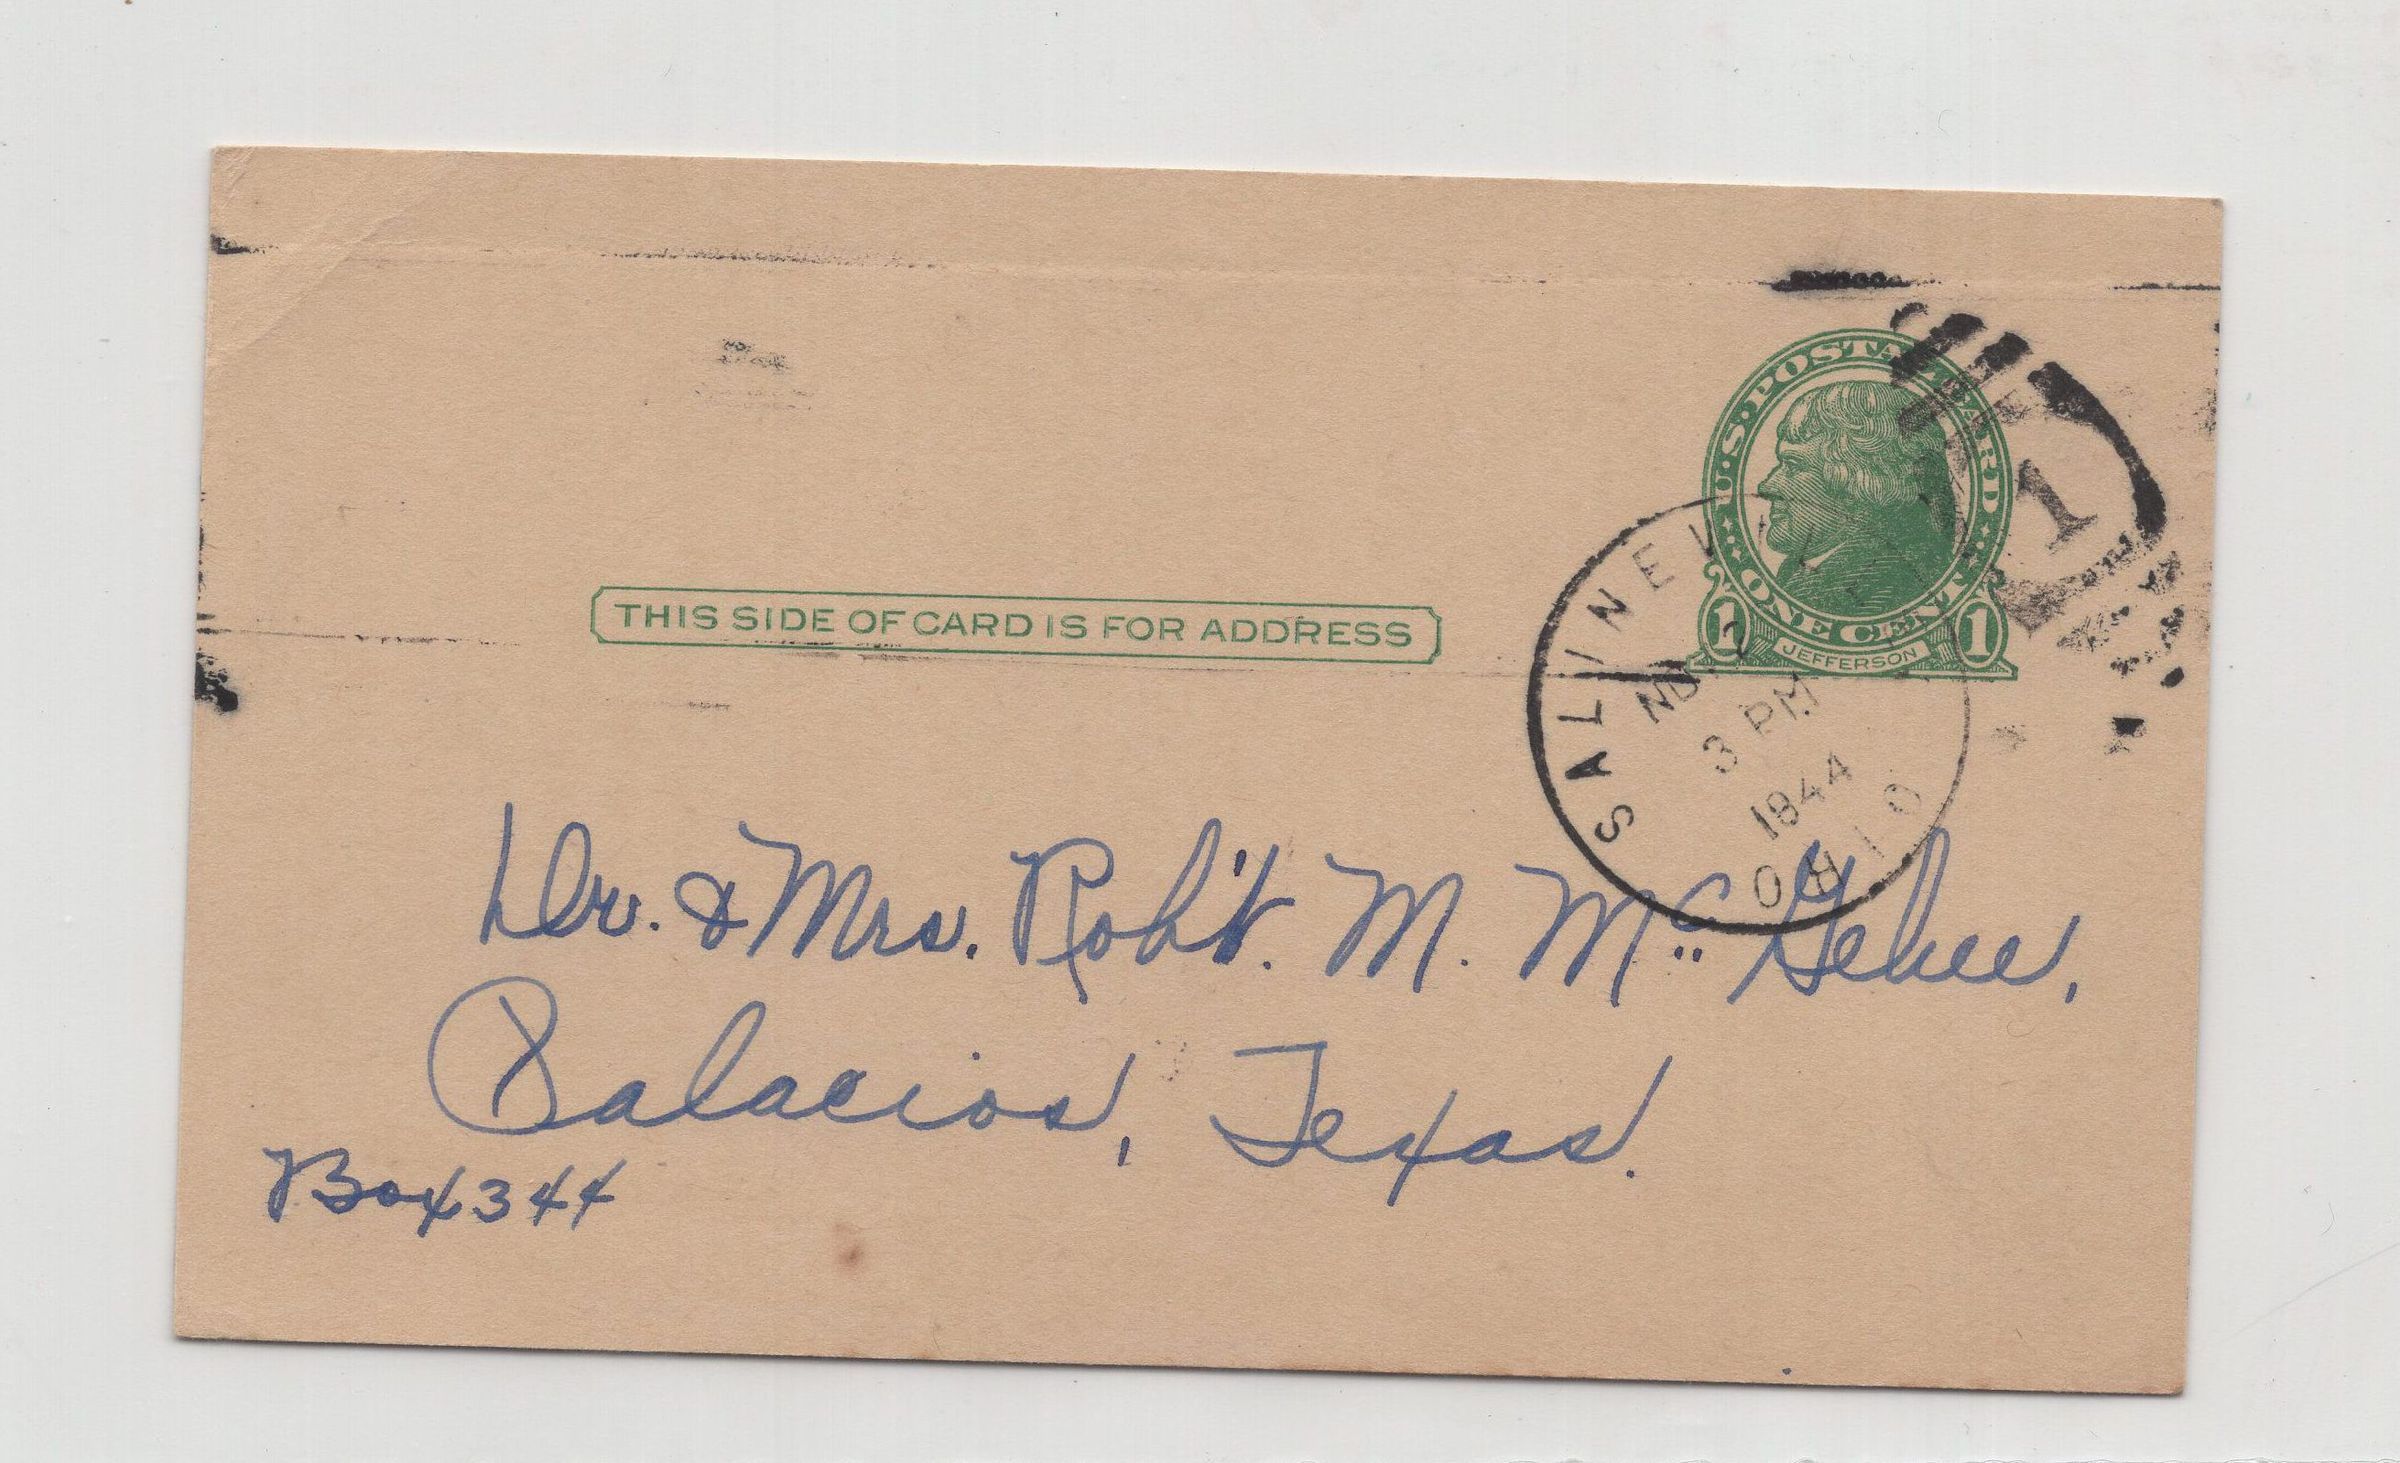 U·S·POSTAL CARD
ONE CENT
1 JEFFERSON 1
1
THIS SIDE OF CARD IS FOR ADDRESS
SALINEVILLE
3 PM
1944
OHIO
Dr. & Mrs. Rob't. M. McGehee,
Palacios, Texas.
Box 344